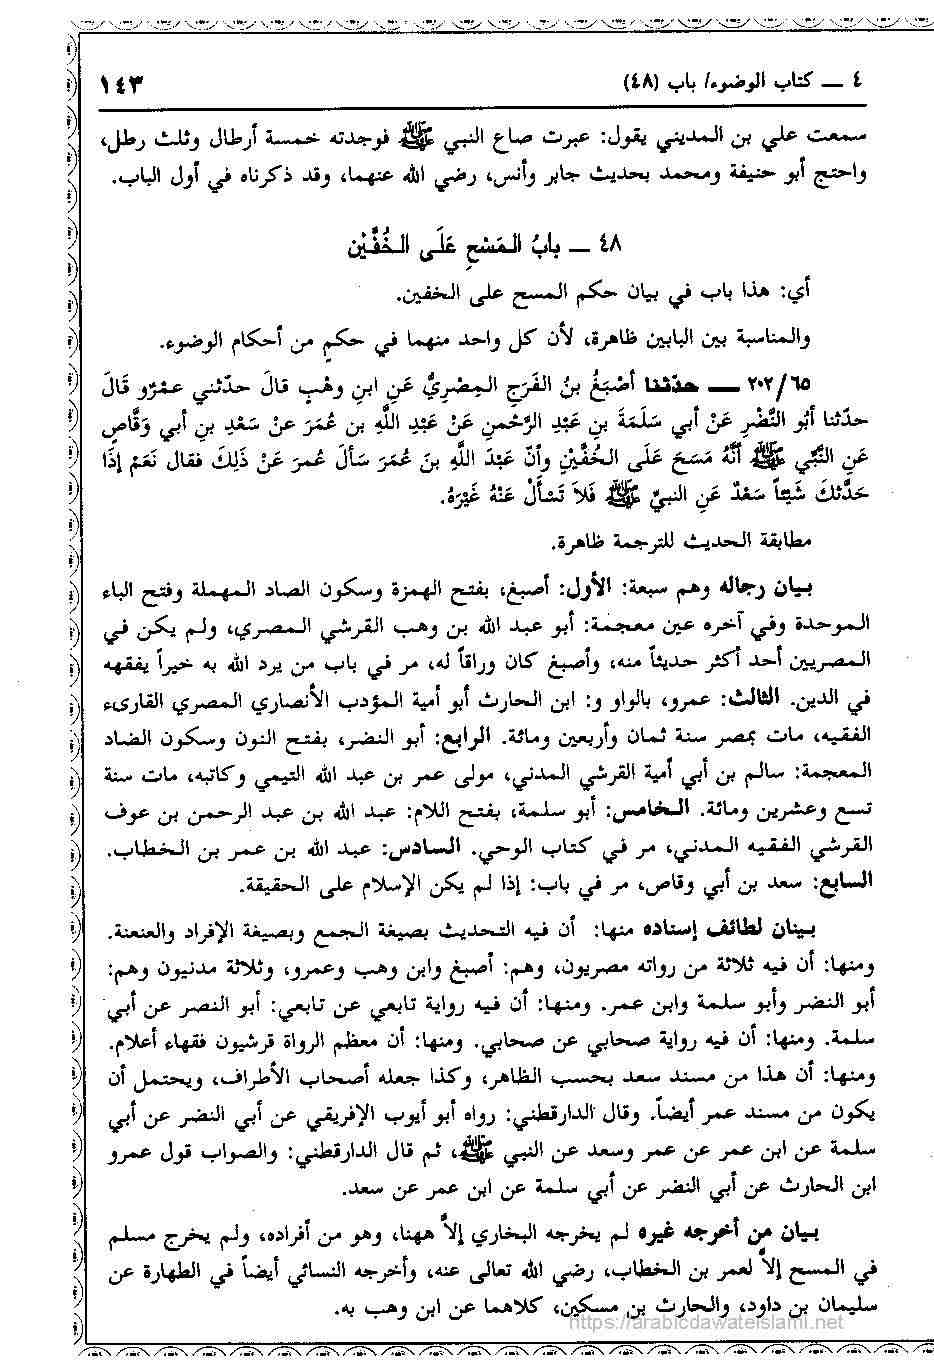 ٤ ـــ كتاب الوضوء/ باب (٤٨)
١٤٣
سمعت علي بن المديني يقول: عبرت صاع النبي ﷺ فوجدته خمسة أرطال وثلث رطل،
واحتج أبو حنيفة ومحمد بحديث جابر وأنس، رضي الله عنهما، وقد ذكرناه في أول الباب.
٤٨ ـــ بابُ المَسْحِ عَلَى الخُفَّيْن
أي: هذا باب في بيان حكم المسح على الخفين.
والمناسبة بين البابين ظاهرة، لأن كل واحد منهما في حكمٍ من أحكام الوضوء.
٢٠٢/٦٥ ـــ حدّثنا أصْبَغُ بنُ الفَرَجِ المِصْرِيُّ عَنِ ابنِ وهْبٍ قالَ حدّثني عمْرٌو قَالَ
حدّثنا أبُو النَّضْرِ عَنْ أبي سَلَمَةَ بنِ عَبْدِ الرَّحْمنِ عَنْ عَبْدِ اللَّهِ بن عُمَرَ عنْ سَعْدِ بنِ أبي وَقَّاصٍ
عَنِ النَّبِّي ﷺ أنَّهُ مَسَحَ عَلَى الخُفَّيْنِ وأنّ عَبْدَ اللَّهِ بنَ عُمَرَ سَألَ عُمرَ عَنْ ذَلِكَ فقال نَعَمْ إذَا
حَدَّثكَ شَيْئاً سَعْدٌ عَنِ النبيِّ ﷺ فَلاَ تَسْأَلْ عَنْهُ غَيْرَهُ.
مطابقة الحديث للترجمة ظاهرة.
بيان رجاله وهم سبعة: الأول: أصبغ، بفتح الهمزة وسكون الصاد المهملة وفتح الباء
الموحدة وفي آخره عين معجمة: أبو عبد الله بن وهب القرشي المصري، ولم يكن في
المصريين أحد أكثر حديثاً منه، وأصبغ كان وراقاً له، مر في باب من يرد الله به خيراً يفقهه
في الدين. الثالث: عمرو، بالواو و: ابن الحارث أبو أمية المؤدب الأنصاري المصري القارىء
الفقيه، مات بمصر سنة ثمان وأربعين ومائة. الرابع: أبو النضر، بفتح النون وسكون الضاد
المعجمة: سالم بن أبي أمية القرشي المدني، مولى عمر بن عبد الله التيمي وكاتبه، مات سنة
تسع وعشرين ومائة. الخامس: أبو سلمة، بفتح اللام: عبد الله بن عبد الرحمن بن عوف
القرشي الفقيه المدني، مر في كتاب الوحي. السادس: عبد الله بن عمر بن الخطاب.
السابع: سعد بن أبي وقاص، مر في باب: إذا لم يكن الإسلام على الحقيقة.
بينان لطائف إسناده منها: أن فيه التحديث بصيغة الجمع وبصيغة الإفراد والعنعنة.
ومنها: أن فيه ثلاثة من رواته مصريون، وهم: أصبغ وابن وهب وعمرو، وثلاثة مدنيون وهم:
أبو النضر وأبو سلمة وابن عمر. ومنها: أن فيه رواية تابعي عن تابعي: أبو النصر عن أبي
سلمة. ومنها: أن فيه رواية صحابي عن صحابي. ومنها: أن معظم الرواة قرشيون فقهاء أعلام.
ومنها: أن هذا من مسند سعد بحسب الظاهر، وكذا جعله أصحاب الأطراف، ويحتمل أن
يكون من مسند عمر أيضاً. وقال الدارقطني: رواه أبو أيوب الإفريقي عن أبي النضر عن أبي
سلمة عن ابن عمر عن عمر وسعد عن النبي ﷺ، ثم قال الدارقطني: والصواب قول عمرو
ابن الحارث عن أبي النضر عن أبي سلمة عن ابن عمر عن سعد.
بيان من أخرجه غيره لم يخرجه البخاري إلاَّ ههنا، وهو من أفراده، ولم يخرج مسلم
في المسح إلاَّ لعمر بن الخطاب، رضي الله تعالى عنه، وأخرجه النسائي أيضاً في الطهارة عن
سليمان بن داود، والحارث بن مسكين، كلاهما عن ابن وهب به.
https://arabicdawateislami.net